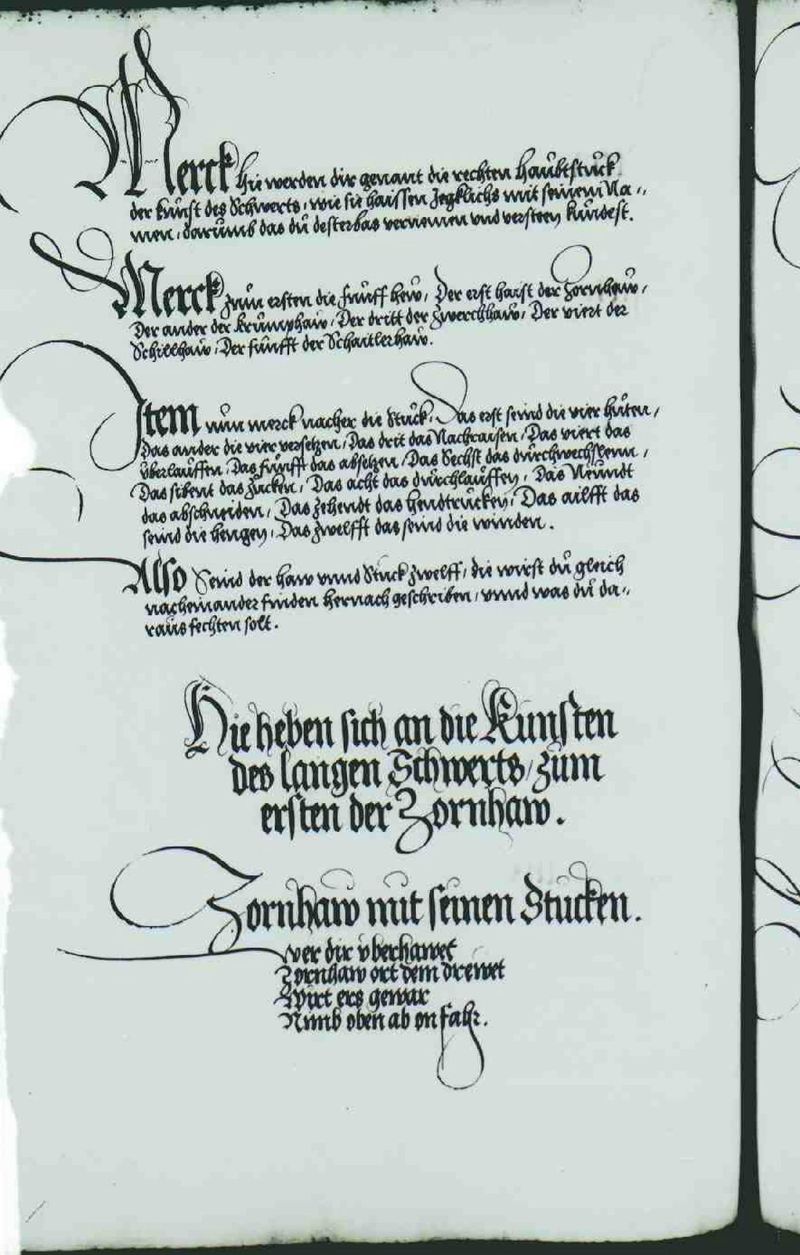 Merck hie werden dir genant die rechten Haübtstuck
der künst des Schwerts, wie sie haissen Jegklichs mit seinem Na„
men, darümb das dü desterbas vernemen vnd versteen kündest.
Merck zum ersten die fünff hew, Der erst haist der Zornhaw,
Der ander der krümphaw, Der dritt der Zwerchhaw, Der viert der
Schillhaw, Der fünfft der Schaitlerhaw.
Item nün merck nacher die Stück, Das erst seind die vier hüten,
Das ander die vier versetzen, Das drit das Nachraisen, Das viert das
überlauffen, Das fünfft das absetzen, Das Sechst das dürchwechslenn,
Das sibent das Zücken, Das acht das dürchlauffen, Das Neündt
das abschneiden, Das Zehendt das hendtrucken, Das ailfft das
seind die hengen, Das Zwelfft das seind die winden.
Also Seind der haw vnnd Stuck Zwelff, die wirst dü gleich
nacheinander finden hernach geschriben, vnnd was dü da„
raüs fechten solt.
Hie heben sich an die Kunsten
des langen Schwerts, zum
ersten der Zornhaw.
Zornhaw mit seinen Stucken.
wer dir vberhawet
Zornhaw ort dem drewet
Wirt ers gewar
Nimb oben ab on fahr.